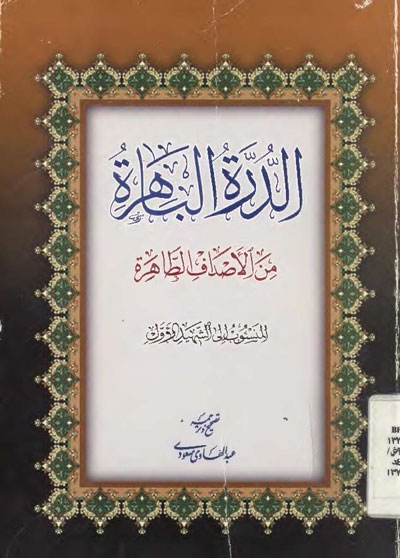 الدُّرَّةُ البَاهِرَةُ
مِنَ الأَصْدَافِ الطَّاهِرَةِ
المنسوب إلى الشهيد الأول
تصحيح و ترجمه
عبدالهادى مسعودى
BF